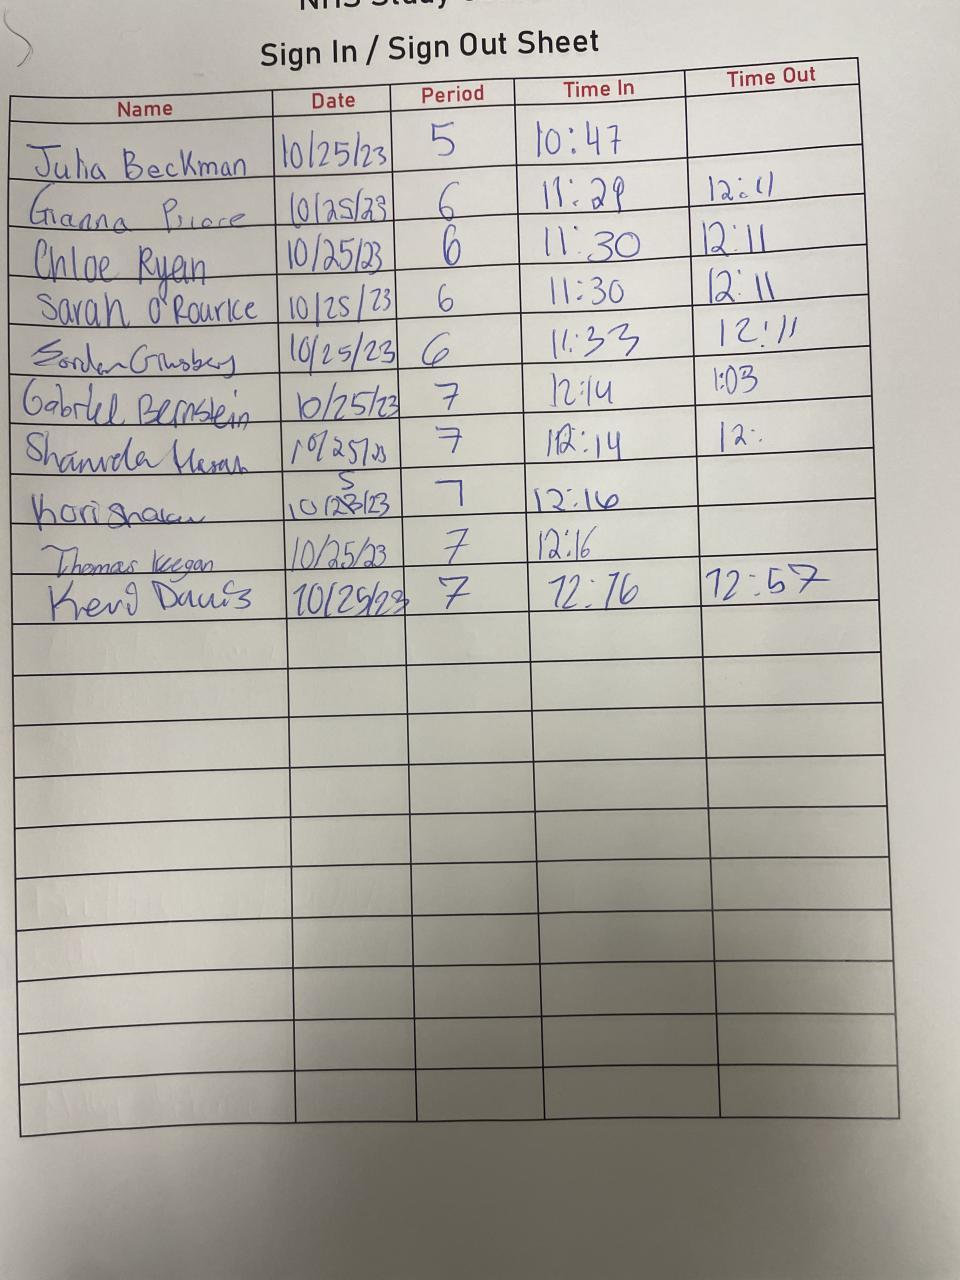 NHS Study
Sign In / Sign Out Sheet
Name Date Period Time In Time Out
Julia Beckman 10/25/23 5 10:47
Gianna 10/25/23 6 11:29 12:11
Chloe Ryan 10/25/23 6 11:30 12:11
Sarah O'Rourke 10/25/23 6 11:30 12:11
Ginsberg 10/25/23 6 11:33 12:11
Gabriel Bernstein 10/25/23 7 12:14 1:03
10/25/23 7 12:14 12:
Kori 10/25/23 7 12:16
Thomas Keegan 10/25/23 7 12:16
Davis 10/25/23 7 12:16 12:57